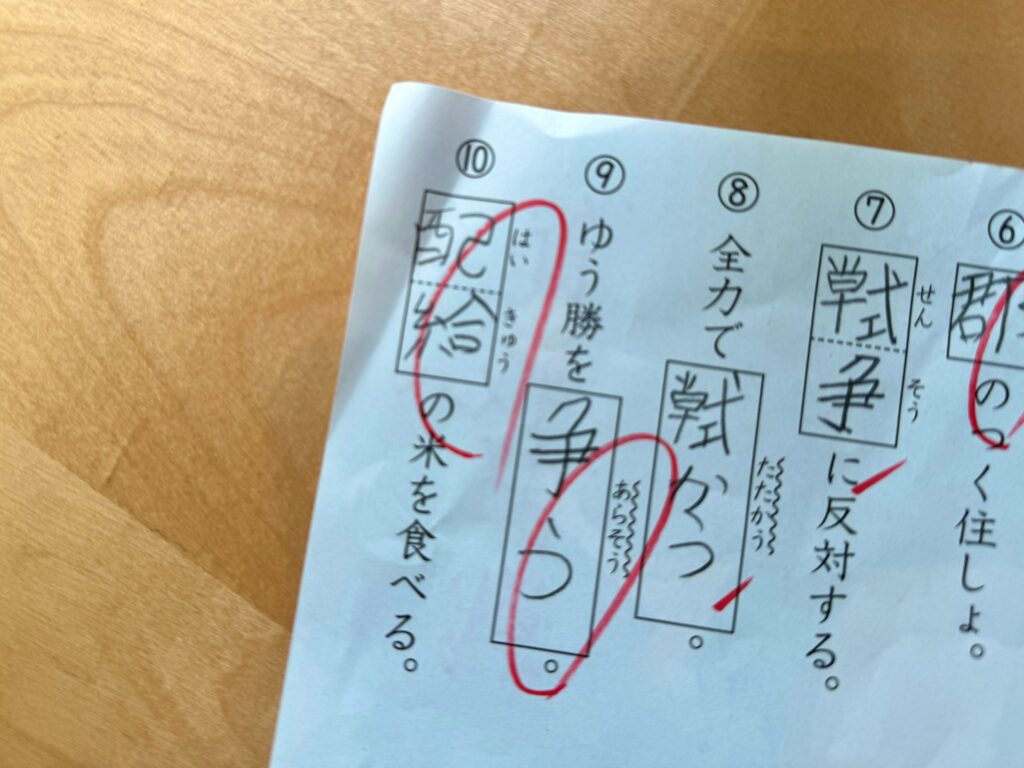 ⑥郡のつく住しょ。
⑦戦争に反対する。
せんそう
⑧全力で戦かう。
たたかう
⑨ゆう勝を争う。
あらそう
⑩配給の米を食べる。
はいきゅう